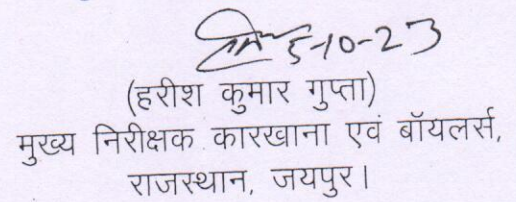 5-10-23
(हरीश कुमार गुप्ता)
मुख्य निरीक्षक कारखाना एवं बॉयलर्स,
राजस्थान, जयपुर।